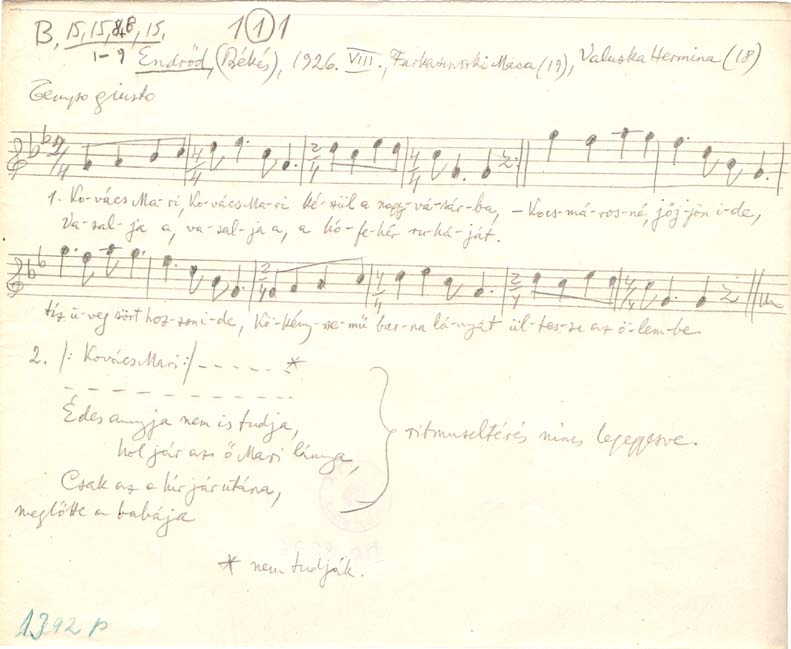 B, 15, 15, 8,8, 15, 1 (1) 1
1-9
Endrőd, (Békés), 1926. VIII., Farkasinszki Maca (19), Valuska Hermina (18)
Tempo giusto
2/4 4/4 2/4 4/4
1. Ko-vács Ma-ri, Ko-vács Ma-ri ké-szül a nagy-vá-sár-ba, – Kocs-má-ros-né, jőj-jön i-de,
Va-sal-ja a, va-sal-ja a, a hó-fe-hér ru-há-ját.
2/4 4/4 2/4 4/4
tíz ü-veg sört hoz-zon i-de, Kö-kény-sze-mű bar-na lá-nyát ül-tes-se az ö-lem-be.
2. /: Kovács Mari :/ - - - - - *
Édes anyja nem is tudja,
hol jár az ő Mari lánya,
Csak az a hír jár utána,
meglőtte a babája
ritmuseltérés nincs lejegyezve.
* nem tudják.
1392 p